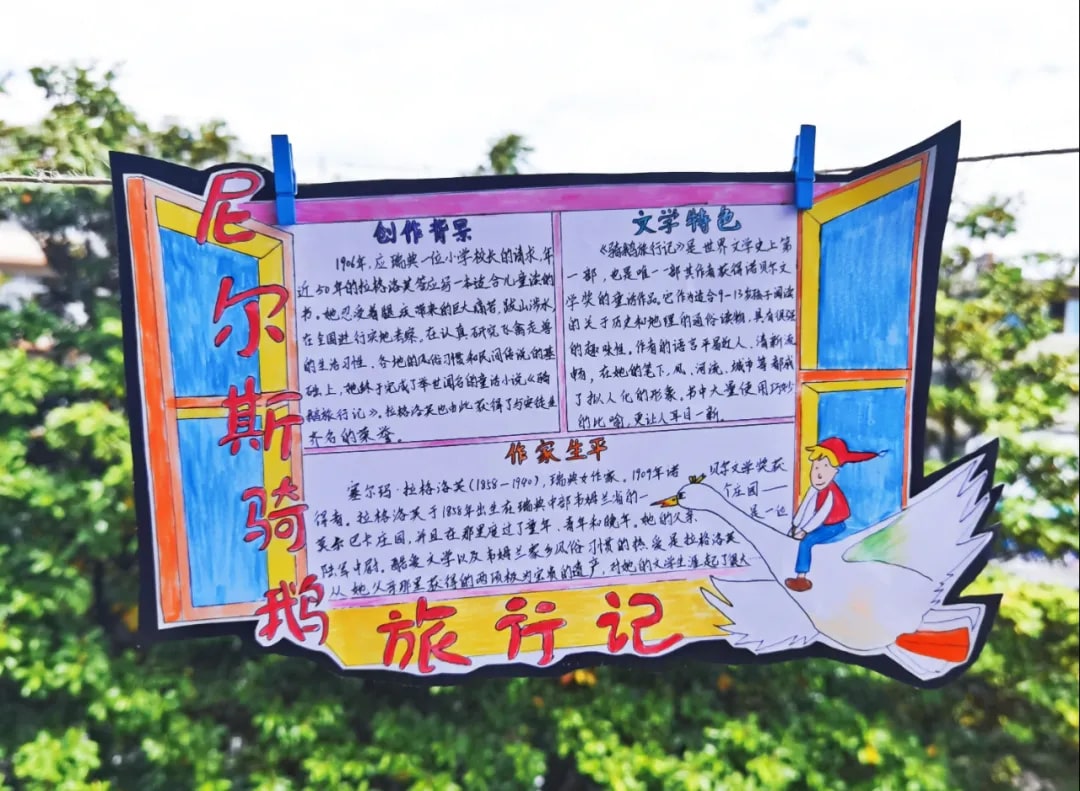 尼尔斯骑鹅
旅行记
创作背景
1906年，应瑞典一位小学校长的请求，年
近50年的拉格洛芙答应写一本适合儿童读的
书。她忍受着腿疾带来的巨大痛苦，跋山涉水，
在全国进行实地考察，在认真研究飞禽走兽
的生活习性、各地的风俗习惯和民间传说的基
础上，她终于完成了举世闻名的童话小说《骑
鹅旅行记》。拉格洛芙也由此获得了与安徒生
齐名的荣誉。
文学特色
《骑鹅旅行记》是世界文学史上第
一部，也是唯一部其作者获得诺贝尔文
学奖的童话作品。它作为适合9-13岁孩子阅读
的关于历史和地理的通俗读物，具有很强
的趣味性。作者的语言平易近人、清新流
畅，在她的笔下，风、河流、城市等都成
了拟人化的形象。书中大量使用巧妙
的比喻，更让人耳目一新。
作家生平
塞尔玛·拉格洛芙（1858-1940），瑞典女作家。1909年诺贝尔文学奖获
得者。拉格洛芙于1858年出生在瑞典中部韦姆兰省的一个庄园——
莫尔巴卡庄园，并且在那里度过了童年、青年和晚年。她的父亲是一位
陆军中尉。酷爱文学以及韦姆兰家乡风俗习惯的热爱是拉格洛芙
从她父亲那里获得的两项极为宝贵的遗产，对她的文学生涯起了很大